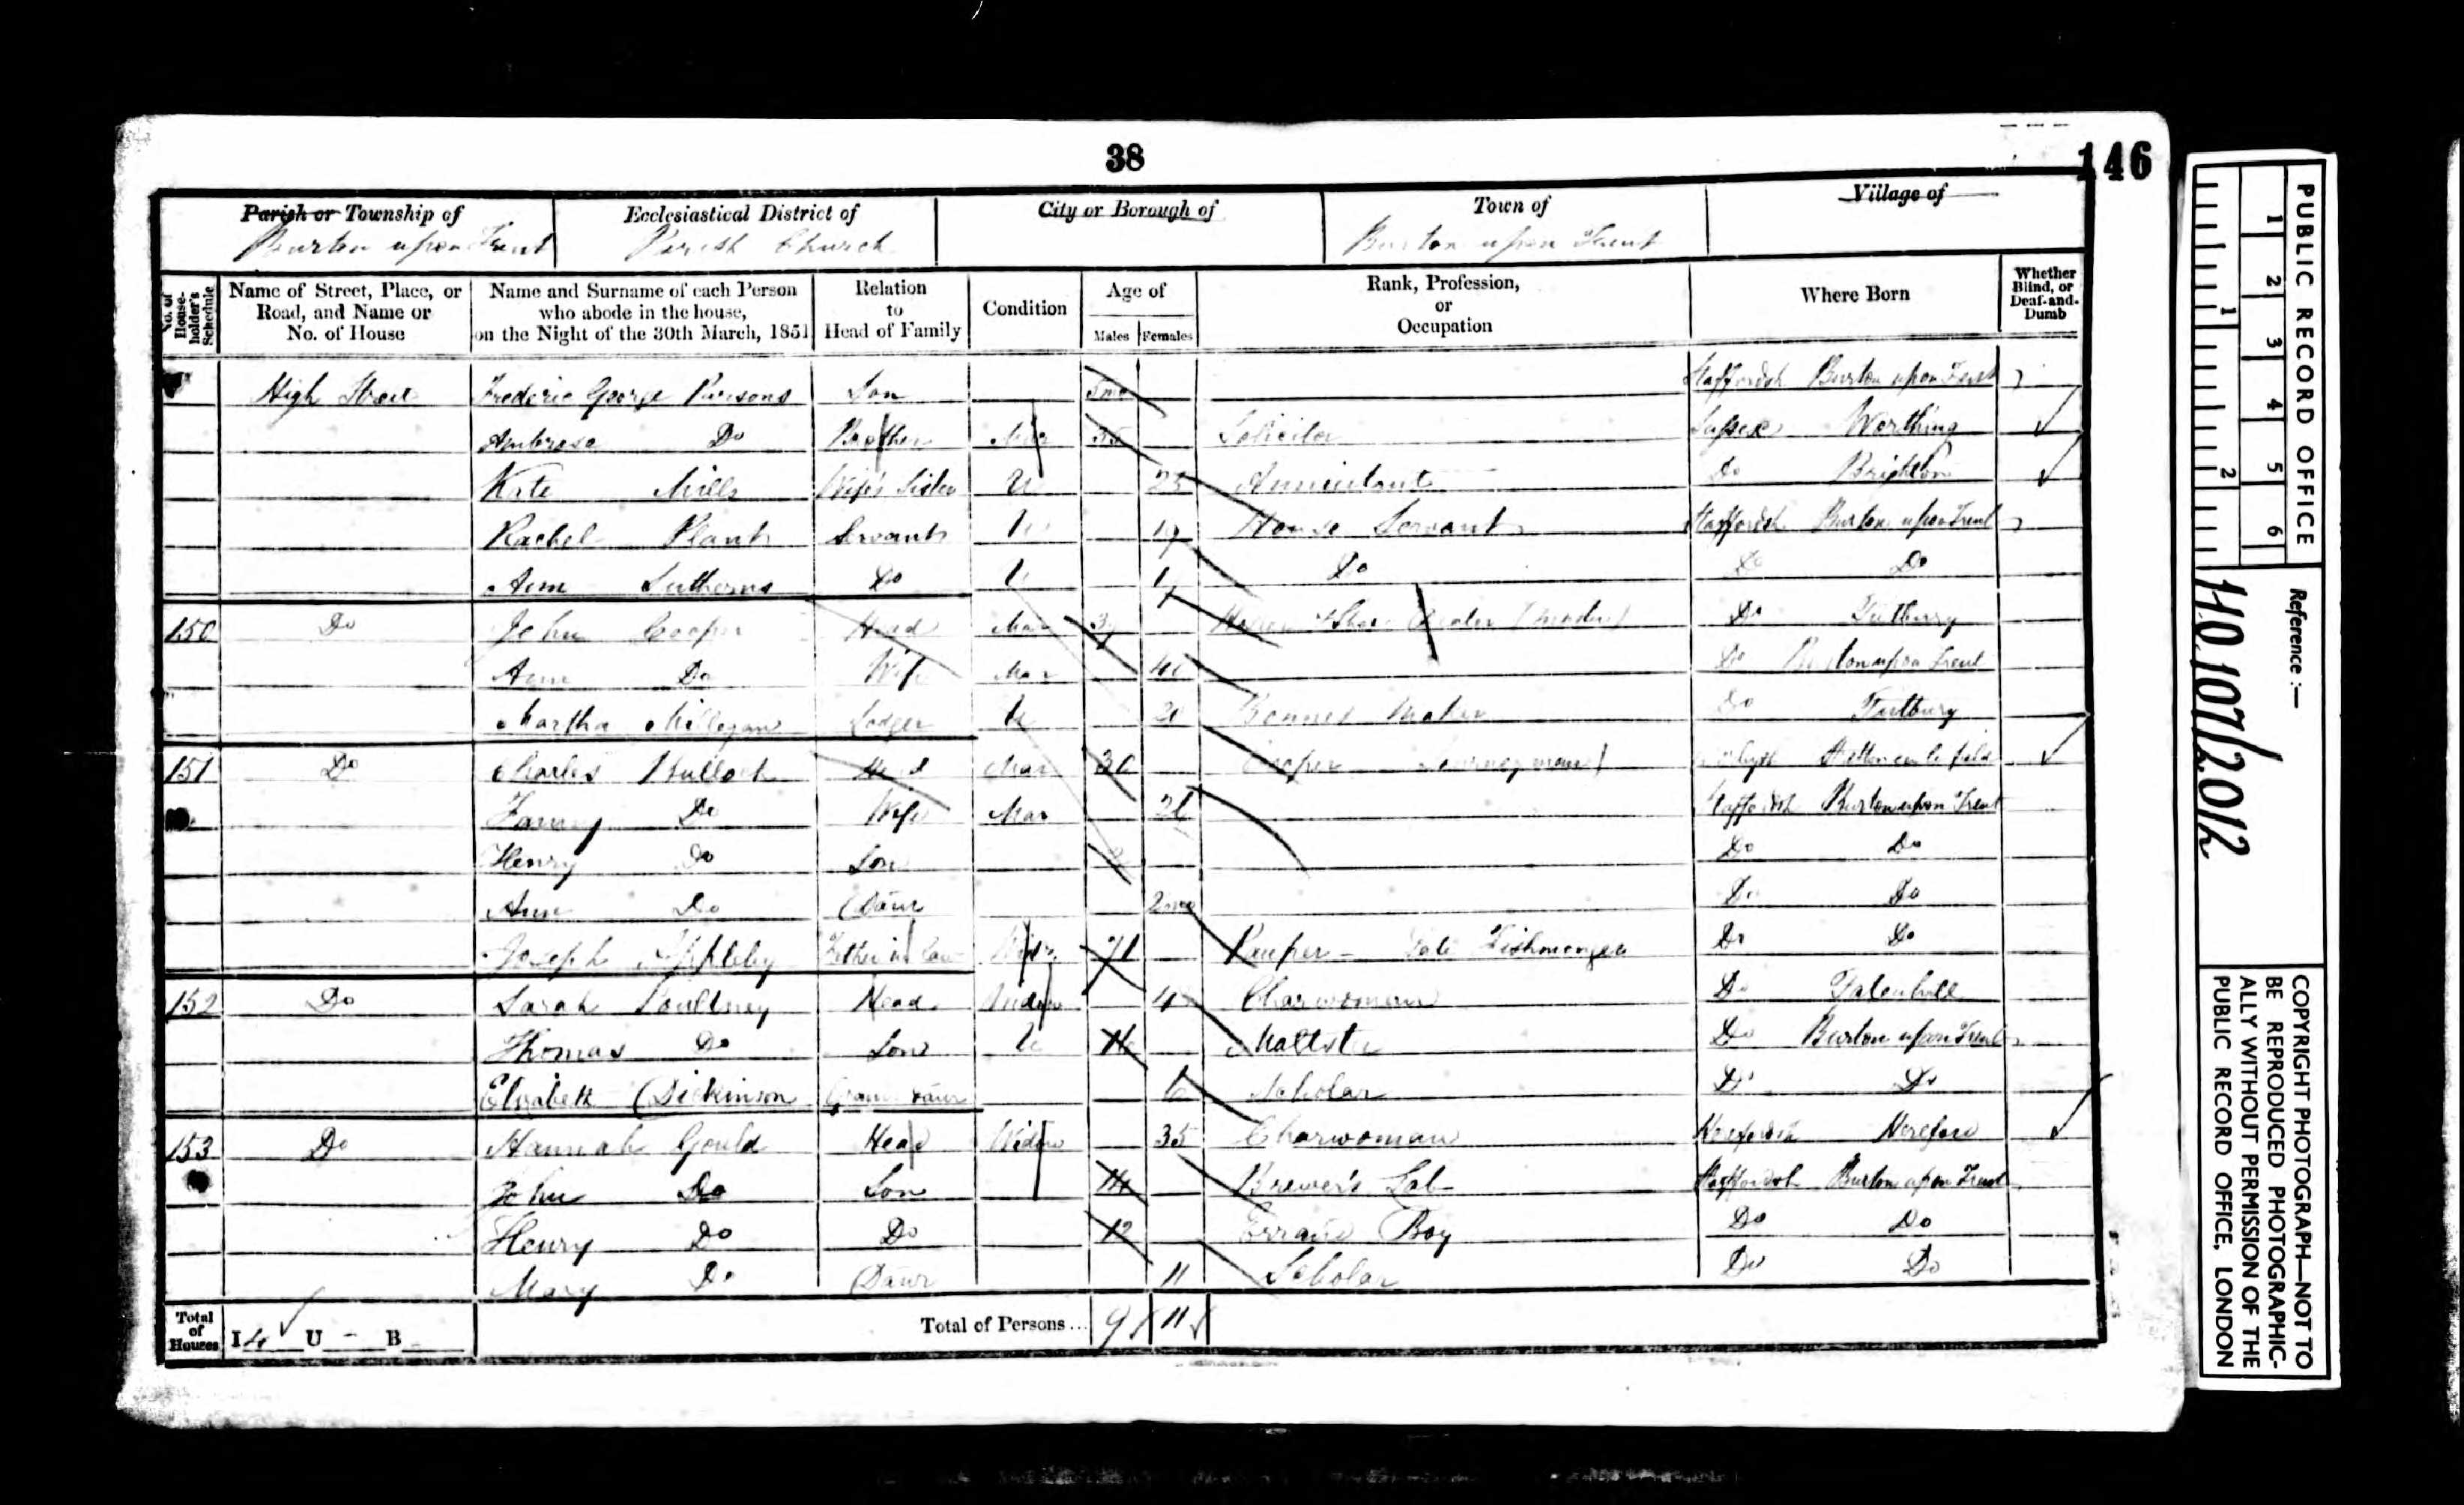 38
146
Parish or Township of
Burton upon Trent
Ecclesiastical District of
Parish Church
City or Borough of
Town of
Burton upon Trent
Village of
No. of House-holder's Schedule
Name of Street, Place, or Road, and Name or No. of House
Name and Surname of each Person who abode in the house, on the Night of the 30th March, 1851
Relation to Head of Family
Condition
Age of
Males Females
Rank, Profession, or Occupation
Where Born
Whether Blind, or Deaf-and-Dumb
High Street Frederic George Parsons Son 5 mo Staffordsh Burton upon Trent
Ambrose Do Brother Mar Solicitor Sussex Worthing
Kate Mills Wife's Sister U 23 Annuitant Do Brighton
Rachel Plant Servant U 19 House Servant Staffordsh Burton upon Trent
Ann Do U Do Do Do
150 Do John Cooper Head Mar Dealer Do Tutbury
Ann Do Wife Mar Do Burton upon Trent
Martha Millegan Lodger U 20 Bonnet Maker Do Tutbury
151 Do Charles Bullock Head Mar 30 Cooper Journeyman
Fanny Do Wife Mar Staffordsh Burton upon Trent
Henry Do Son 2 Do Do
Ann Do Daur 2 mo Do Do
Joseph Appleby Father in law Widr 71 Pauper - Late Fishmonger Do Do
152 Do Sarah Poultney Head Widow 48 Charwoman Do Tatenhill
Thomas Do Son U Maltster Do Burton upon Trent
Elizabeth Dickinson Grand Daur 6 Scholar Do Do
153 Do Hannah Gould Head Widow 35 Charwoman Herefordsh Hereford
John Do Son 14 Brewer's Lab Staffordsh Burton upon Trent
Henry Do Do 12 Errand Boy Do Do
Mary Do Daur 11 Scholar Do Do
Total of Houses I 4 U - B
Total of Persons... 9 11
PUBLIC RECORD OFFICE
1 2 3 4 5 6
1 2
Reference :-
H.O. 107/2012
COPYRIGHT PHOTOGRAPH—NOT TO
BE REPRODUCED PHOTOGRAPHIC-
ALLY WITHOUT PERMISSION OF THE
PUBLIC RECORD OFFICE, LONDON